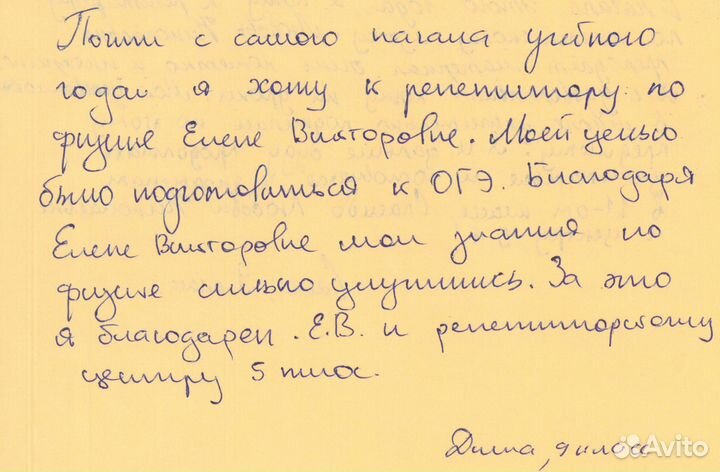 Почти с самого начала учебного
года я хожу к репетитору по
физике Елене Викторовне. Моей целью
было подготовиться к ОГЭ. Благодаря
Елене Викторовне мои знания по
физике сильно улучшились. За это
я благодарен Е.В. и репетиторскому
центру 5 плюс.
Дима, 9 класс
Avito